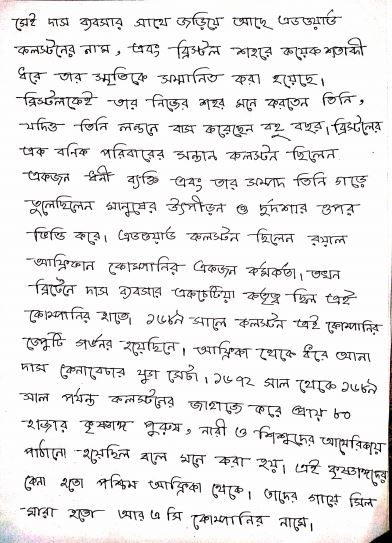 সেই দাস ব্যবসার সাথে জড়িয়ে আছে এডওয়ার্ড
কলস্টনের নাম, এবং ব্রিস্টল শহরে কয়েক শতাব্দী
ধরে তার স্মৃতিকে সম্মানিত করা হয়েছে।
ব্রিস্টলকেই তার নিজের শহর মনে করতেন তিনি,
যদিও তিনি লন্ডনে বাস করেছেন বহু বছর। ব্রিস্টলের
এক বনিক পরিবারের সন্তান কলস্টন ছিলেন
একজন ধনী ব্যক্তি এবং তার সম্পদ তিনি গড়ে
তুলেছিলেন মানুষের উৎপীড়ন ও দুর্দশার ওপর
ভিত্তি করে। এডওয়ার্ড কলস্টন ছিলেন রয়াল
আফ্রিকান কোম্পানির একজন কর্মকর্তা। তখন
ব্রিটেনে দাস ব্যবসার একচেটিয়া কর্তৃত্ব ছিল এই
কোম্পানির হাতে। ১৬৮৯ সালে কলস্টন এই কোম্পানির
ডেপুটি গভর্নর হয়েছিলে। আফ্রিকা থেকে ধরে আনা
দাস কেনাবেচার যুগ সেটা। ১৬৭২ সাল থেকে ১৬৮৯
সাল পর্যন্ত কলস্টনের জাহাজে করে প্রায় ৮০
হাজার কৃষ্ণাঙ্গ পুরুষ, নারী ও শিশুদের আমেরিকায়
পাঠানো হয়েছিল বলে মনে করা হয়। এই কৃষ্ণাঙ্গদের
কেনা হতো পশ্চিম আফ্রিকা থেকে। তাদের গায়ে সিল
মারা হতো আর এ সি কোম্পানির নামে।